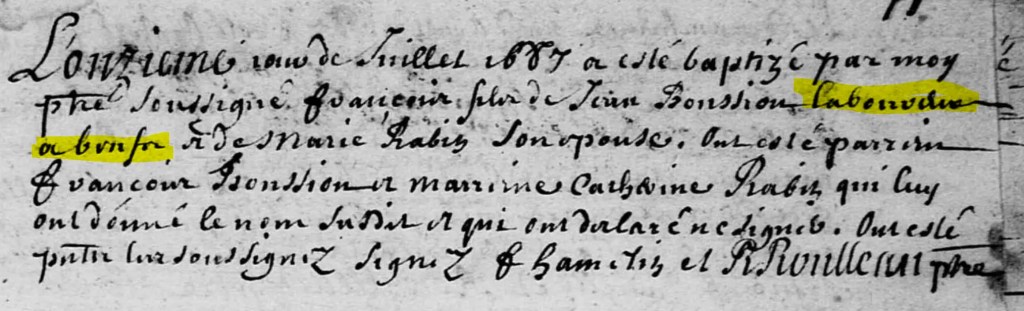 L'onzieme jour de Juillet 1687 a esté baptizé par moy
pbre soussigné François filz de Jean Boussion laboureur
a bœufs & de Marie Rabin son epouse. Ont esté parrein
François Boussion et marreine Catherine Rabin qui luy
ont donné le nom susdit et qui ont declaré ne signer. Ont esté
pnts les soussignez signez f hamelin et R Roulleau pbre